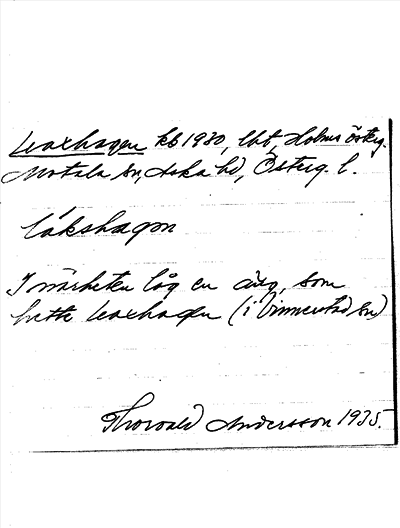 Leaxhagen kb 1930, lht, Holms österg.
Motala sn, Aska hd, Österg. l.
lákshagon
I närheten låg en äng, som
hette Leaxhagen (i Vinnerstad sn)
Thorvald Andersson 1935.